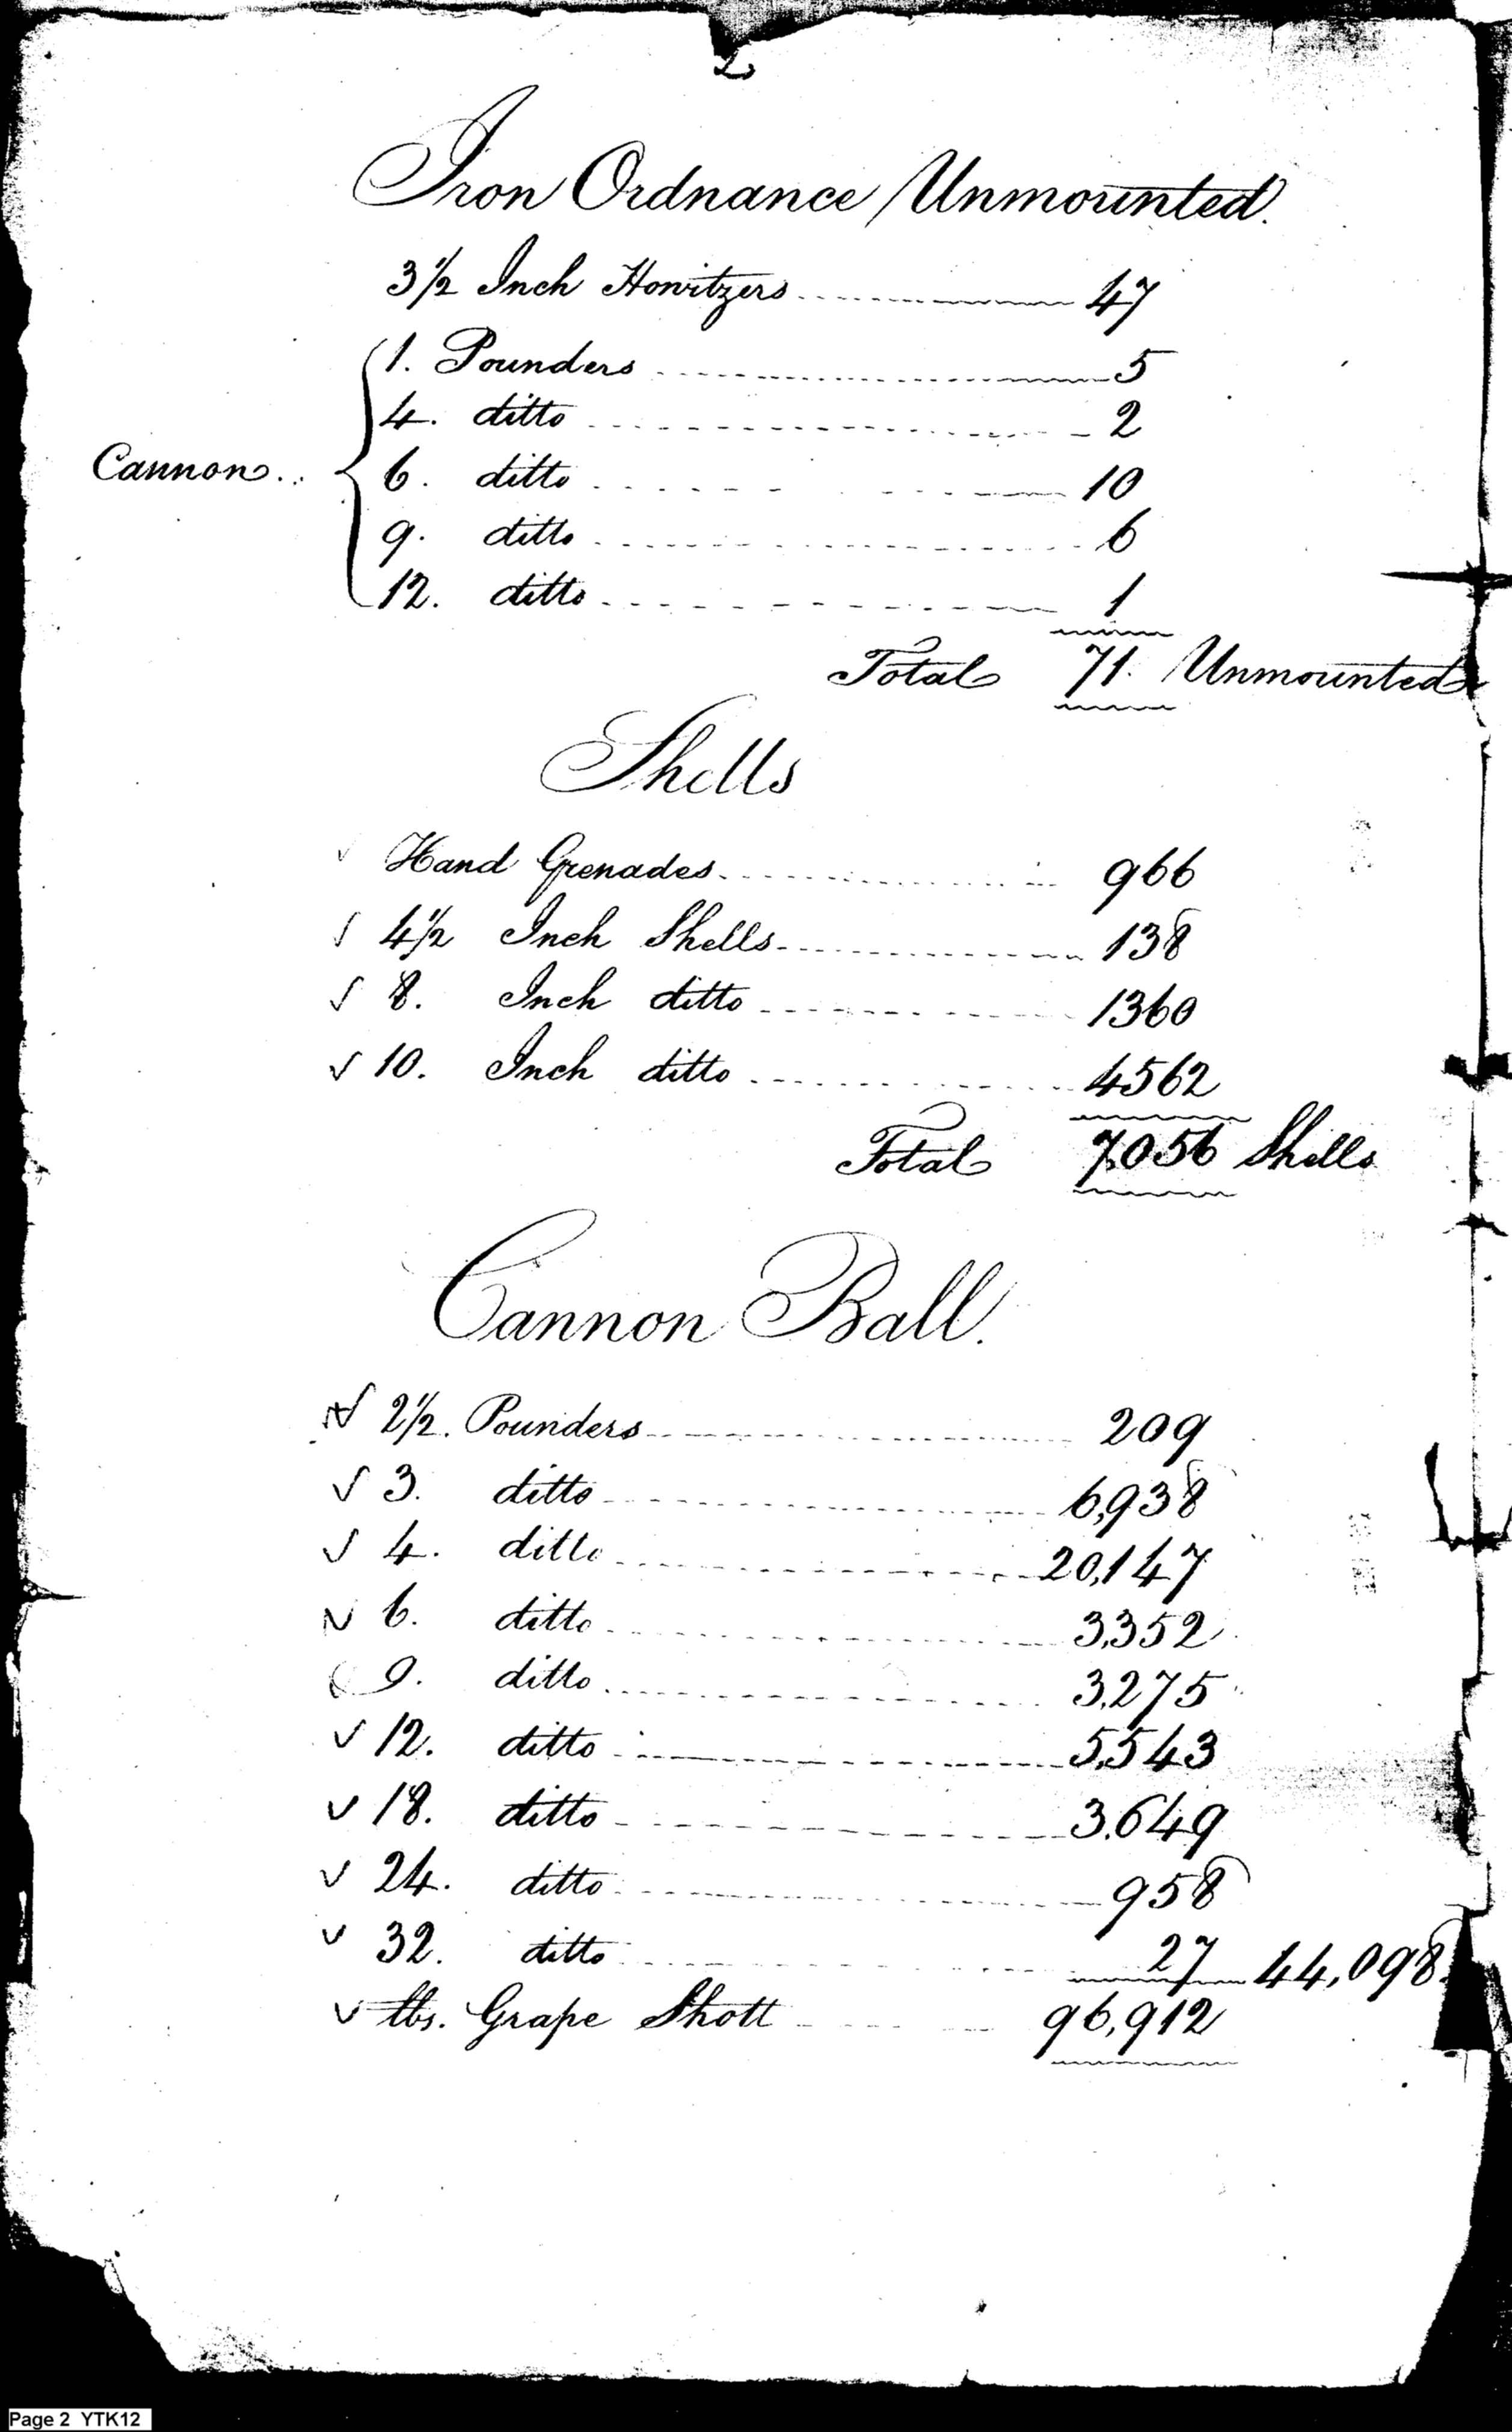 2
Iron Ordnance Unmounted.
3 1/2 Inch Howitzers 47
1. Pounders 5
4. ditto 2
Cannon.. 6. ditto 10
9. ditto 6
12. ditto 1
Total 71. Unmounted
Shells
Hand Grenades 966
4 1/2 Inch Shells 138
8. Inch ditto 1360
10. Inch ditto 4562
Total 7,056 Shells
Cannon Ball.
2 1/2. Pounders 209
3. ditto 6,938
4. ditto 20,147
6. ditto 3,352
9. ditto 3,275
12. ditto 5,543
18. ditto 3.649
24. ditto 958
32. ditto 27 44,098
lbs. Grape Shott 96,912
Page 2 YTK12